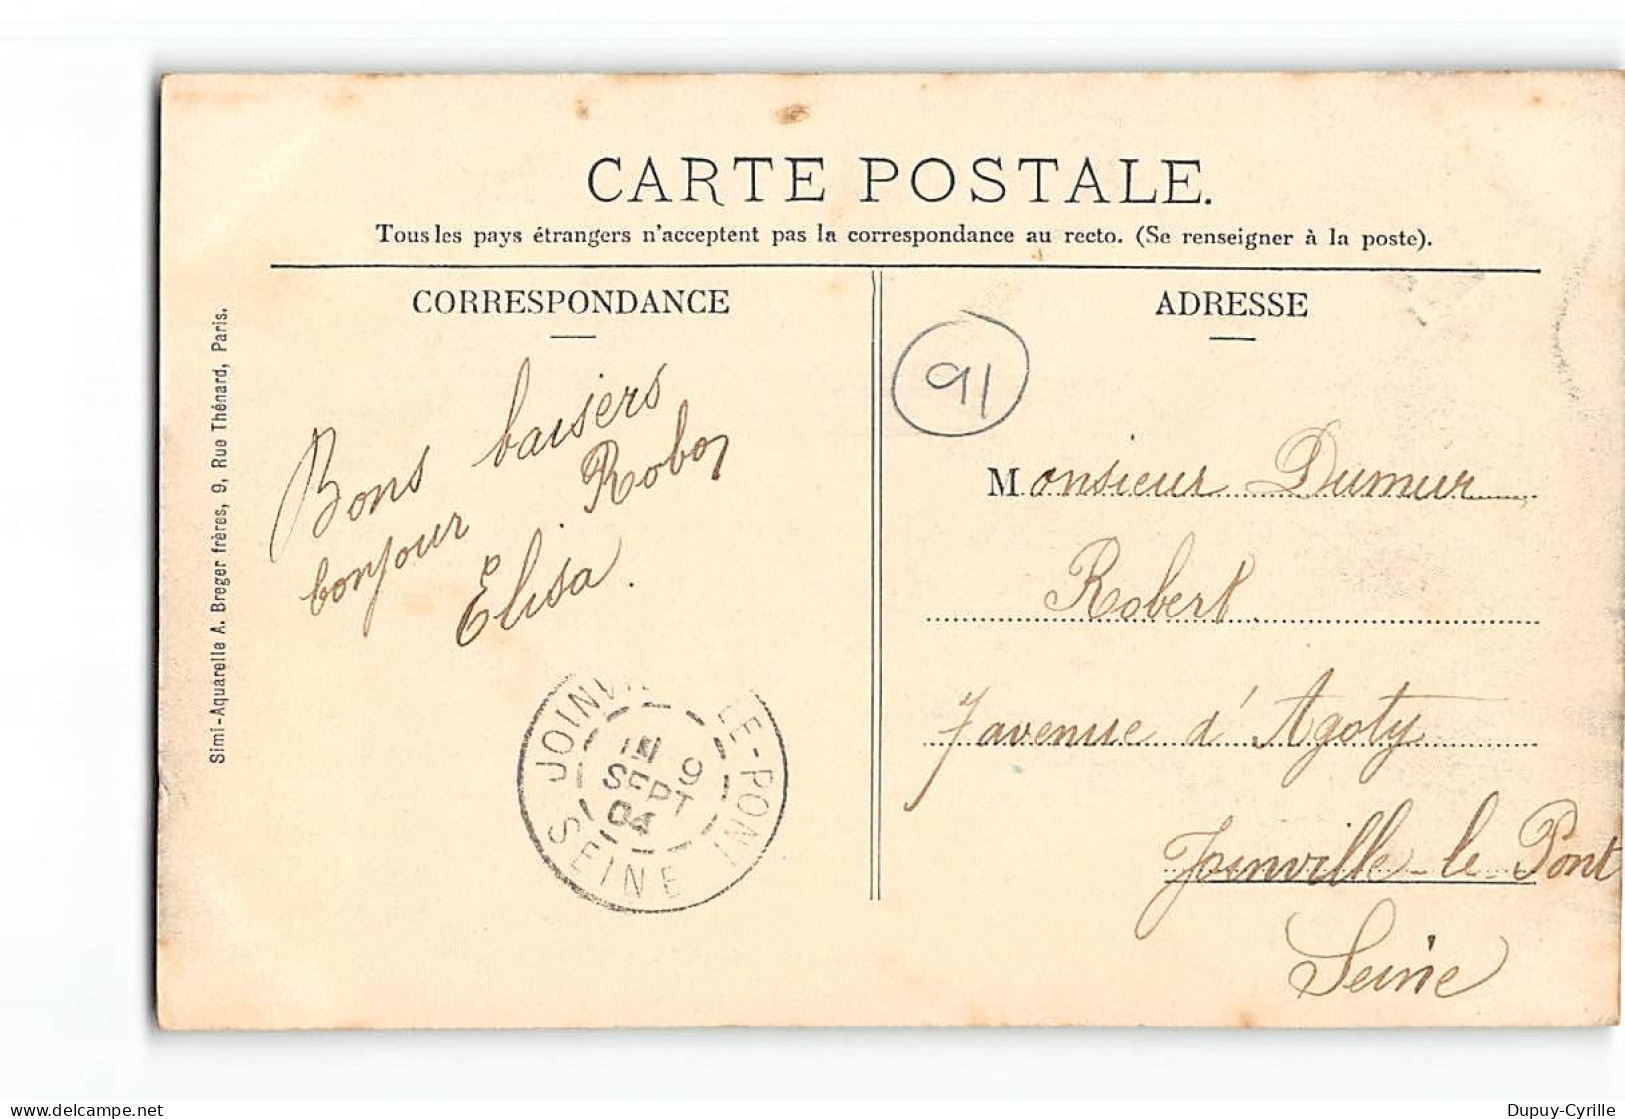 CARTE POSTALE.
Tous les pays étrangers n'acceptent pas la correspondance au recto. (Se renseigner à la poste).
CORRESPONDANCE
Simi-Aquarelle A. Breger frères, 9, Rue Thénard, Paris.
Bons baisers
bonjour Robor
Elisa.
JOINVILLE-LE-PONT
9
SEPT
04
SEINE
ADRESSE
91
Monsieur Dumur
Robert
7 avenue d'Agoty
Joinville-le-Pont
Seine
Dupuy-Cyrille